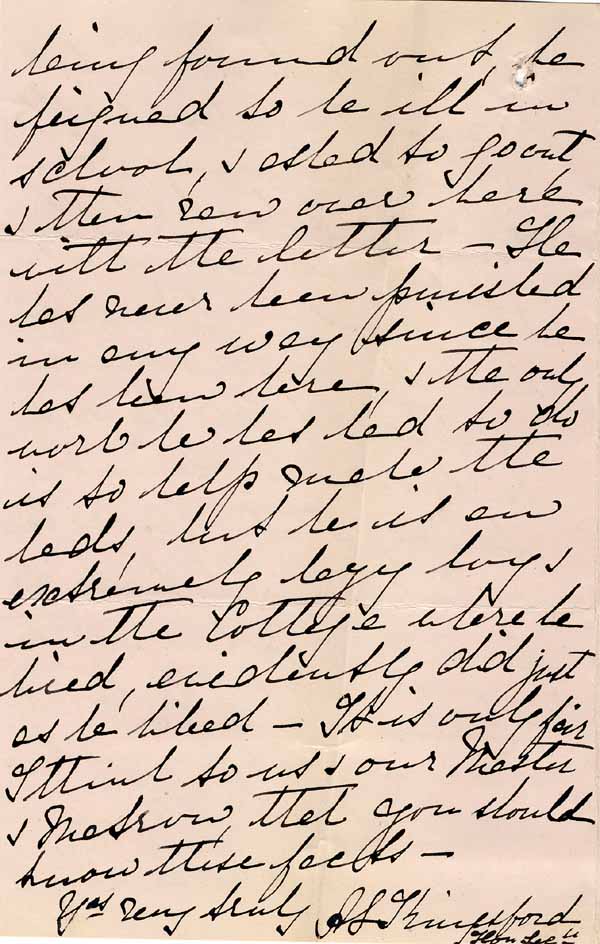 being found out, he
feigned to be ill in
school, & asked to go out
& then ran over here
with the letter – He
has never been punished
in any way since he
has been here, & the only
work he has had to do
is to help make the
beds, but he is an
extremely lazy boy &
in the Cottage where he
lived, evidently did just
as he liked – It is only fair
I think to us & our Master
& Matron, that you should
know these facts –
Yrs very truly A S Kingsford
Hon Secty